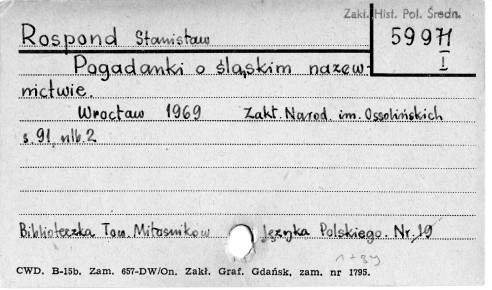 Zakł. Hist. Pol. Średn.
Rospond Stanisław
59971
I
Pogadanki o śląskim nazew-
nictwie.
Wrocław 1969 Zakł. Narod. im. Ossolińskich
s. 91, nlb. 2
Biblioteczka Tow. Miłosników Języka Polskiego. Nr. 19
CWD. B-15b. Zam. 657-DW/On. Zakł. Graf. Gdańsk, zam. nr 1795.